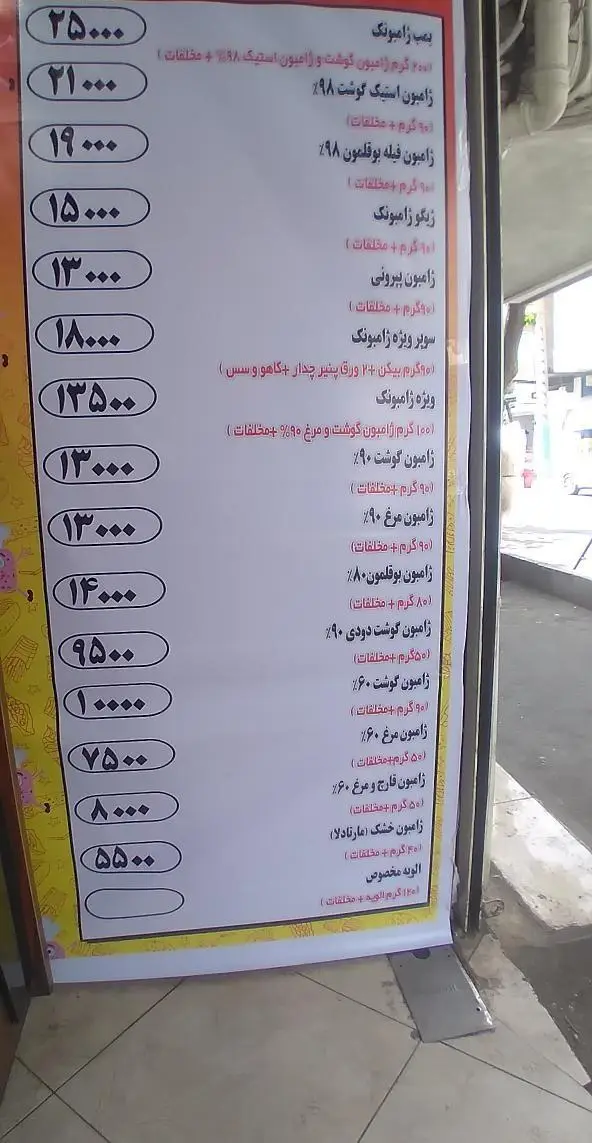 بمب ژامبونک
۲۵۰۰۰
(۲۰۰ گرم ژامبون گوشت و ژامبون استیک ۹۸% + مخلفات )
ژامبون استیک گوشت ۹۸٪
۲۱۰۰۰
(۹۰ گرم + مخلفات)
ژامبون فیله بوقلمون ۹۸٪
۱۹۰۰۰
(۹۰ گرم +مخلفات )
ژیگو ژامبونک
۱۵۰۰۰
(۹۰ گرم + مخلفات )
ژامبون پپرونی
۱۳۰۰۰
(۹۰گرم + مخلفات )
سوپر ویژه ژامبونک
۱۸۰۰۰
(۹۰گرم بیکن +۲ ورق پنیر چدار +کاهو و سس )
ویژه ژامبونک
۱۳۵۰۰
(۱۰۰ گرم ژامبون گوشت و مرغ ۹۰% +مخلفات )
ژامبون گوشت ۹۰٪
۱۳۰۰۰
(۹۰ گرم + مخلفات )
ژامبون مرغ ۹۰٪
۱۳۰۰۰
(۹۰ گرم + مخلفات)
ژامبون بوقلمون۸۰٪
۱۴۰۰۰
(۸۰ گرم + مخلفات )
ژامبون گوشت دودی ۹۰٪
۹۵۰۰
(۵۰گرم +مخلفات)
ژامبون گوشت ۶۰٪
۱۰۰۰۰
(۹۰ گرم +مخلفات )
ژامبون مرغ ۶۰٪
۷۵۰۰
(۵۰ گرم+مخلفات )
ژامبون قارچ و مرغ ۶۰٪
۸۰۰۰
(۵۰ گرم +مخلفات)
ژامبون خشک (مارتادلا)
۵۵۰۰
(۴۰ گرم + مخلفات )
الویه مخصوص
(۱۲۰ گرم الویه + مخلفات )